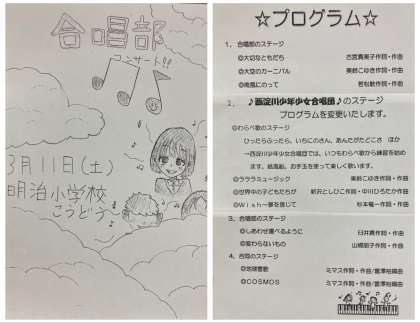 合唱部
コンサート!!
3月11日(土)
明治小学校
こうどう
☆プログラム☆
1、合唱部のステージ
◎大切なともだち
◎大空のカーニバル
◎南風にのって
2、♪西淀川少年少女合唱団♪のステージ
プログラムを変更いたします。
◎わらべ歌のステージ
ひったらふったら、いちにのさん、あんたがたどこさ ほか
→西淀川少年少女合唱団では、いつもわらべ歌から練習を始め
ます。紙風船、お手玉を使って楽しく歌います。
◎ラララミュージック 美鈴こゆき作詞・作曲
◎世界中の子どもたちが 新沢としひこ作詞・中川ひろたか作曲
◎Wish～夢を信じて 杉本竜一作詞・作曲
3、合唱部のステージ
◎しあわせ運べるように 臼井真作詞・作曲
◎変わらないもの 山崎朋子作詞・作曲
4、合同のステージ
◎地球讃歌 ミマス作詞・作曲/富澤裕編曲
◎COSMOS ミマス作詞・作曲/富澤裕編曲